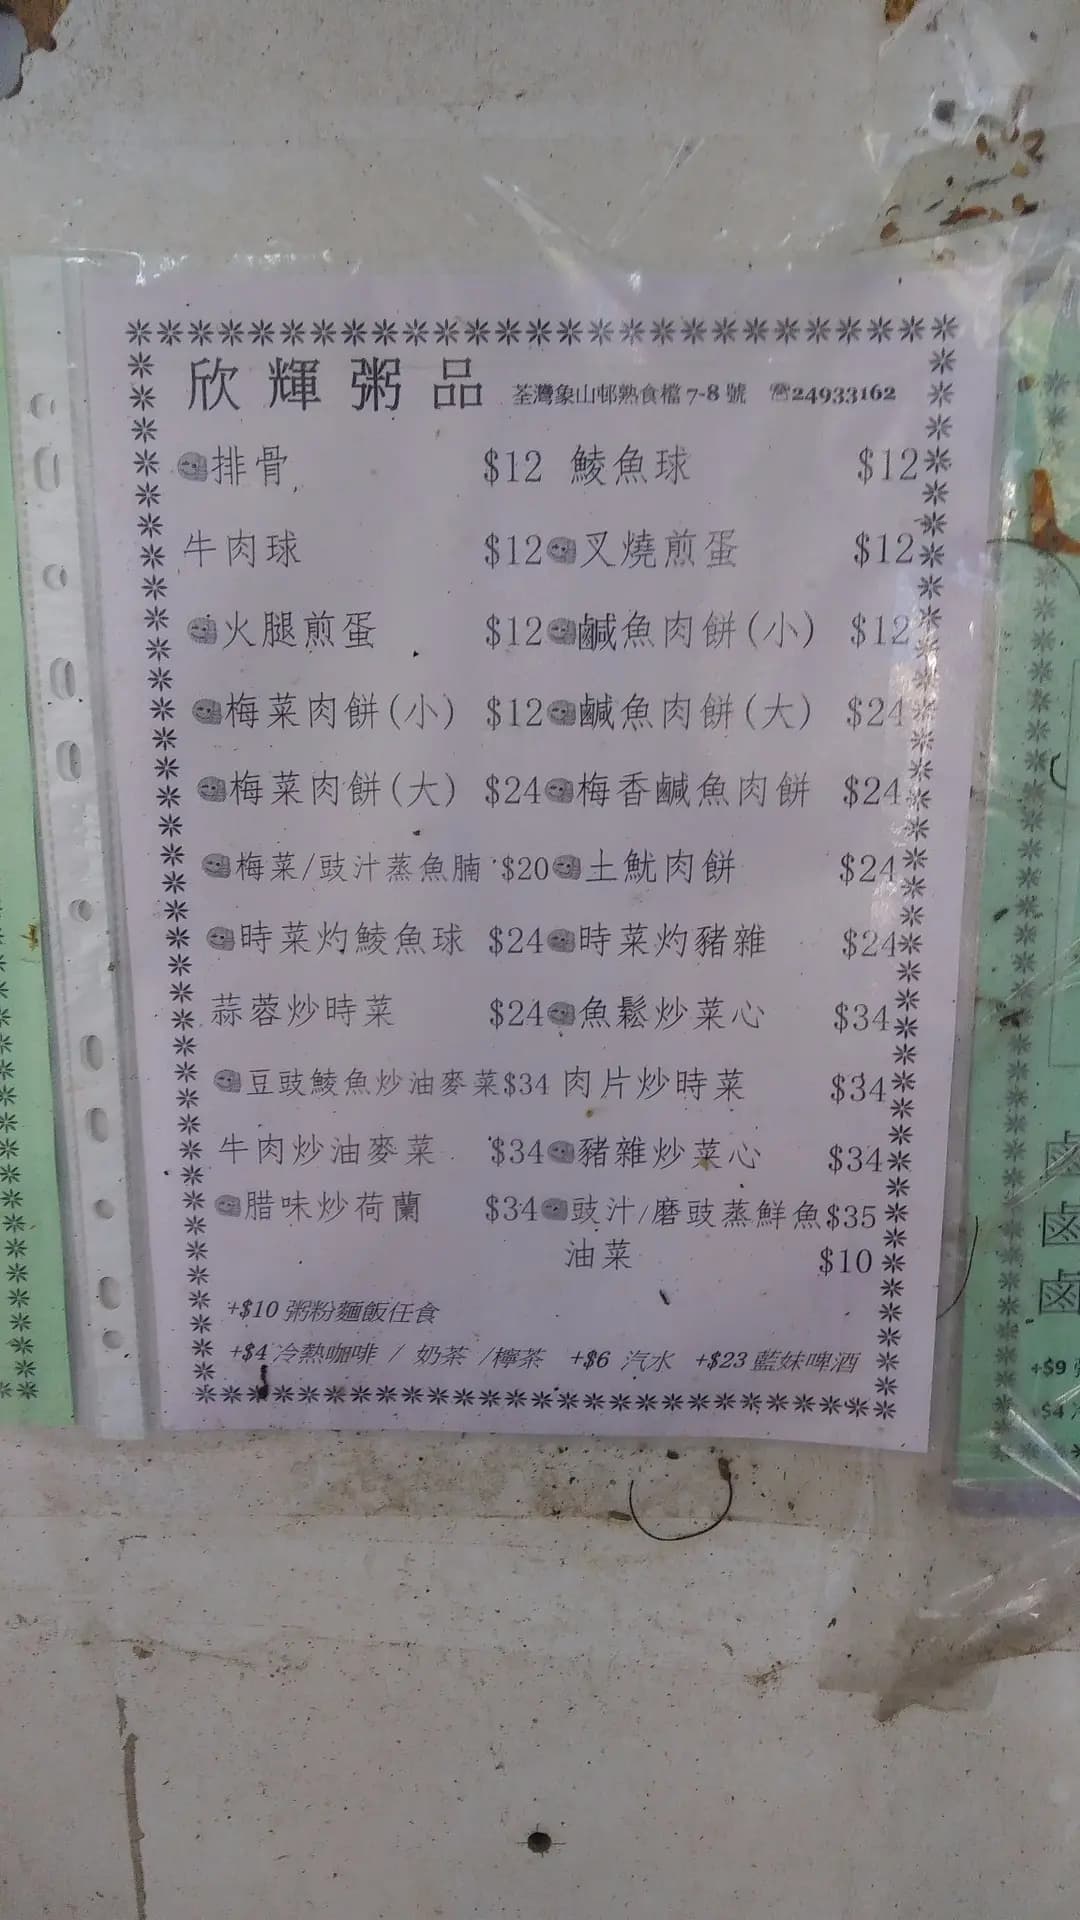 欣輝粥品 荃灣象山邨熟食檔 7-8 號 ☏24933162
排骨 $12 鯪魚球 $12
牛肉球 $12 叉燒煎蛋 $12
火腿煎蛋 $12 鹹魚肉餅(小) $12
梅菜肉餅(小) $12 鹹魚肉餅(大) $24
梅菜肉餅(大) $24 梅香鹹魚肉餅 $24
梅菜/豉汁蒸魚腩 $20 土魷肉餅 $24
時菜灼鯪魚球 $24 時菜灼豬雜 $24
蒜蓉炒時菜 $24 魚鬆炒菜心 $34
豆豉鯪魚炒油麥菜$34 肉片炒時菜 $34
牛肉炒油麥菜 $34 豬雜炒菜心 $34
腊味炒荷蘭 $34 豉汁/磨豉蒸鮮魚$35
油菜 $10
+$10 粥粉麵飯任食
+$4 冷熱咖啡 / 奶茶 /檸茶 +$6 汽水 +$23 藍妹啤酒
鹵
鹵
鹵
+$9
+$4